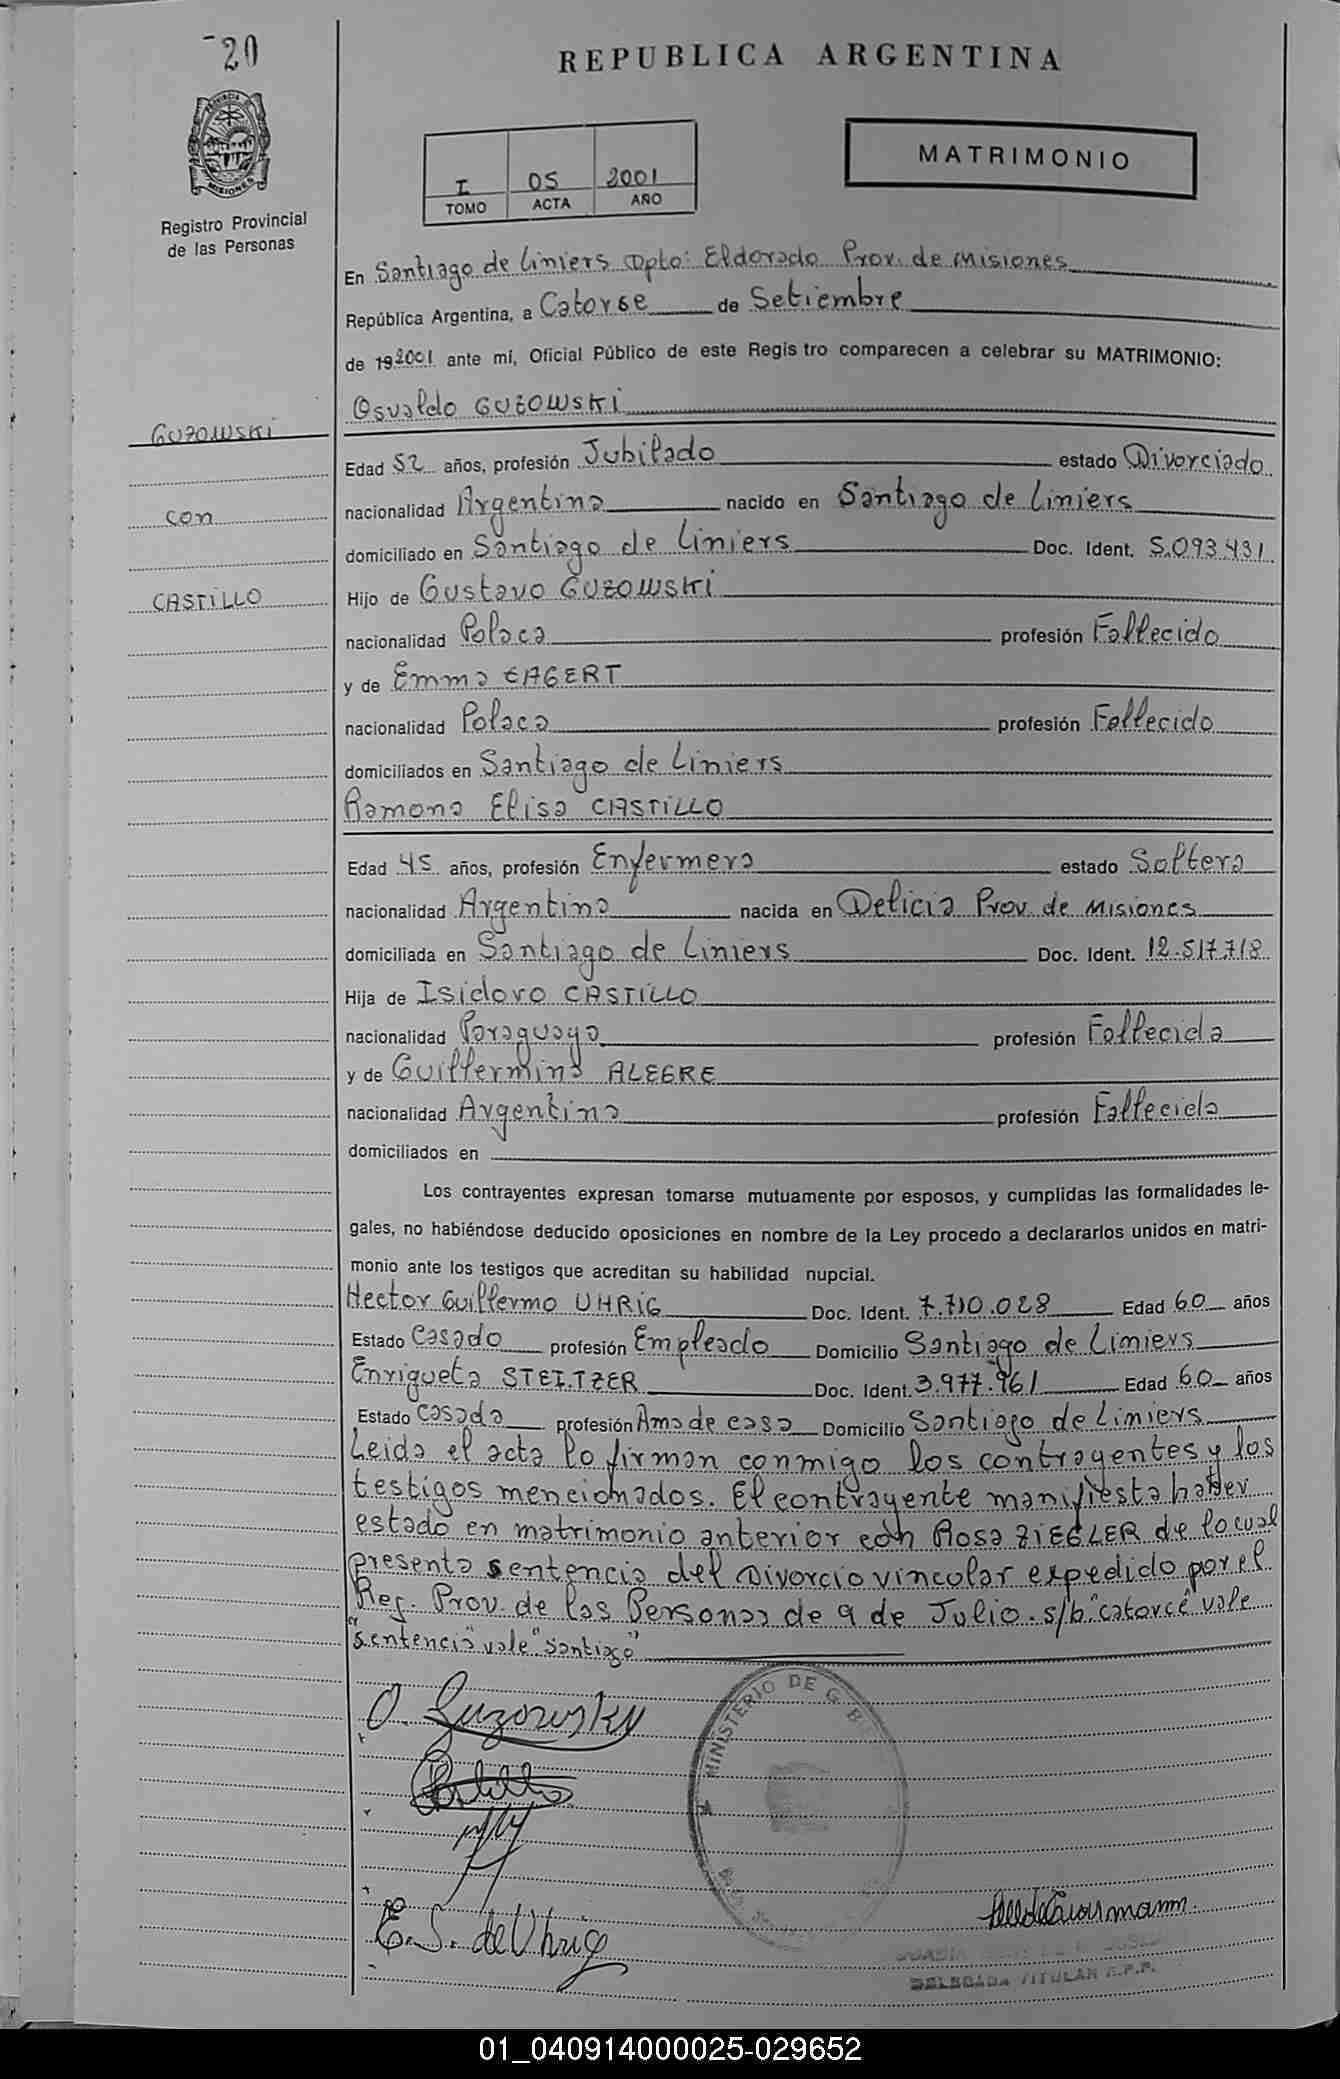 20
REPUBLICA ARGENTINA
PROVINCIA DE MISIONES
Registro Provincial
de las Personas
I 05 2001
TOMO ACTA AÑO
MATRIMONIO
En Santiago de Liniers Dpto: Eldorado Prov. de Misiones
República Argentina, a Catorse de Setiembre
de 192001 ante mí, Oficial Público de este Registro comparecen a celebrar su MATRIMONIO:
Osvaldo GUZOWSKI
GUZOWSKI
Edad 52 años, profesión Jubilado estado Divorciado
nacionalidad Argentina nacido en Santiago de Liniers
con
domiciliado en Santiago de Liniers Doc. Ident. 5.093.431
CASTILLO
Hijo de Gustavo GUZOWSKI
nacionalidad Polaca profesión Fallecido
y de Emma EAGERT
nacionalidad Polaca profesión Fallecido
domiciliados en Santiago de Liniers
Ramona Elisa CASTILLO
Edad 45 años, profesión Enfermera estado Soltera
nacionalidad Argentina nacida en Delicia Prov. de Misiones
domiciliada en Santiago de Liniers Doc. Ident. 12.517.718
Hija de Isidoro CASTILLO
nacionalidad Paraguaya profesión Fallecida
y de Guillermina ALEGRE
nacionalidad Argentina profesión Fallecida
domiciliados en
Los contrayentes expresan tomarse mutuamente por esposos, y cumplidas las formalidades le-
gales, no habiéndose deducido oposiciones en nombre de la Ley procedo a declararlos unidos en matri-
monio ante los testigos que acreditan su habilidad nupcial.
Hector Guillermo UHRIG Doc. Ident. 7.710.028 Edad 60 años
Estado Casado profesión Empleado Domicilio Santiago de Liniers
Enriqueta STEITZER Doc. Ident. 3.977.961 Edad 60 años
Estado Casada profesión Ama de casa Domicilio Santiago de Liniers
Leida el acta lo firman conmigo los contrayentes y los
testigos mencionados. El contrayente manifiesta haber
estado en matrimonio anterior con Rosa ZIEGLER de lo cual
presenta sentencia del Divorcio vincular expedido por el
Reg. Prov. de las Personas de 9 de Julio. s/b. "catorce" vale
"sentencia" vale "Santiago"
O. Guzowski
Castillo
E. S. de Uhrig
MINISTERIO DE G
DELEGADA TITULAR R.P.P.
01_040914000025-029652